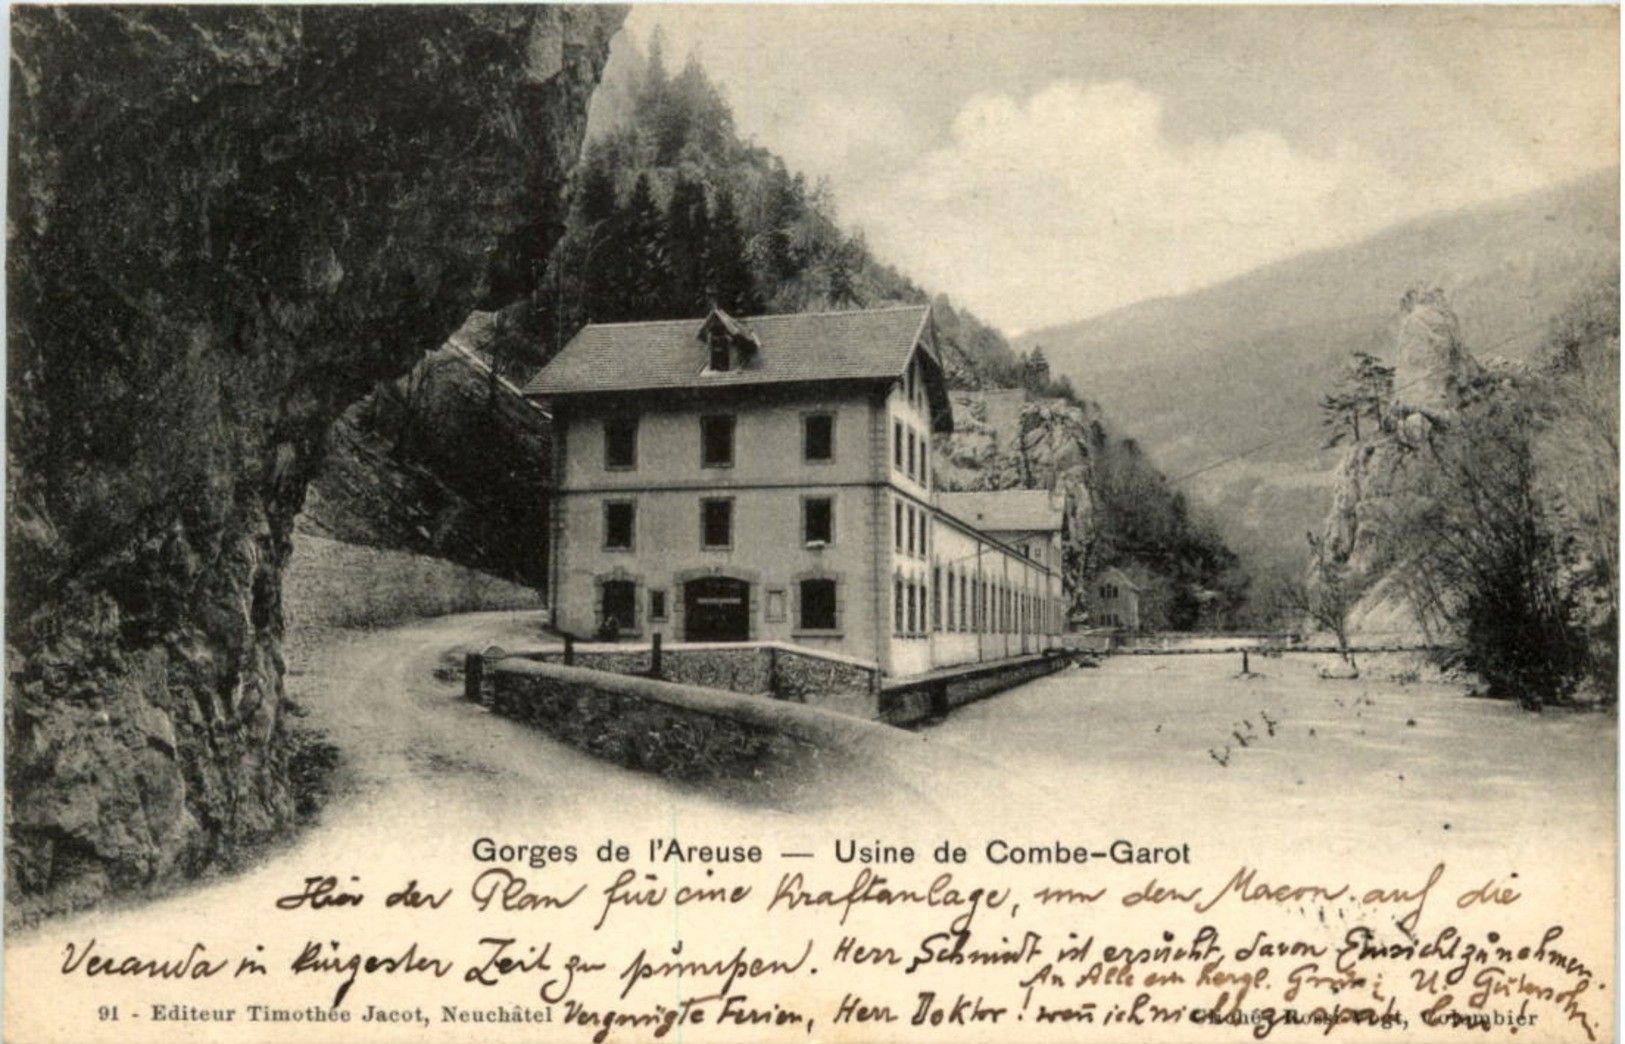 Gorges de l'Areuse — Usine de Combe-Garot
Hier der Plan für eine Kraftanlage, um den Macon auf die
Veranda in kürzester Zeit zu pumpen. Herr Schmidt ist ersucht, davon Einsicht zu nehmen.
An Alle ein herzl.
91 - Editeur Timothée Jacot, Neuchâtel
Vergnügte Ferien, Herr Doktor! wenn ich nicht
Cliché Rossi-Vogt, Colombier